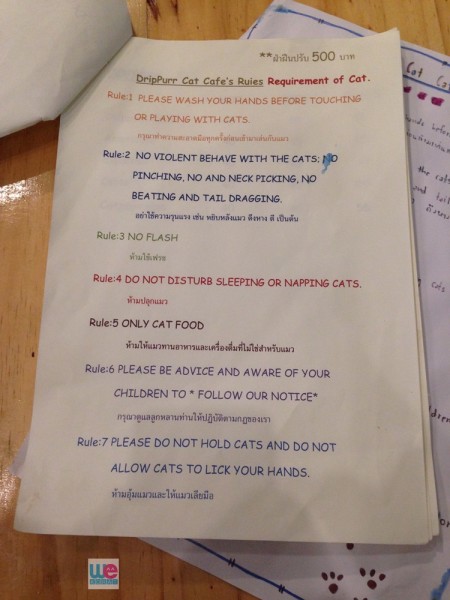 **ฝ่าฝืนปรับ 500 บาท
DripPurr Cat Cafe's Rules Requirement of Cat.
Rule:1 PLEASE WASH YOUR HANDS BEFORE TOUCHING
OR PLAYING WITH CATS.
กรุณาทำความสะอาดมือทุกครั้งก่อนเข้ามาเล่นกับแมว
Rule:2 NO VIOLENT BEHAVE WITH THE CATS; NO
PINCHING, NO AND NECK PICKING, NO
BEATING AND TAIL DRAGGING.
อย่าใช้ความรุนแรง เช่น หยิบหลังแมว ดึงหาง ตี เป็นต้น
Rule:3 NO FLASH
ห้ามใช้แฟรช
Rule:4 DO NOT DISTURB SLEEPING OR NAPPING CATS.
ห้ามปลุกแมว
Rule:5 ONLY CAT FOOD
ห้ามให้แมวทานอาหารและเครื่องดื่มที่ไม่ใช่สำหรับแมว
Rule:6 PLEASE BE ADVICE AND AWARE OF YOUR
CHILDREN TO * FOLLOW OUR NOTICE*
กรุณาดูแลลูกหลานท่านให้ปฏิบัติตามกฎของเรา
Rule:7 PLEASE DO NOT HOLD CATS AND DO NOT
ALLOW CATS TO LICK YOUR HANDS.
ห้ามอุ้มแมวและให้แมวเลียมือ
we